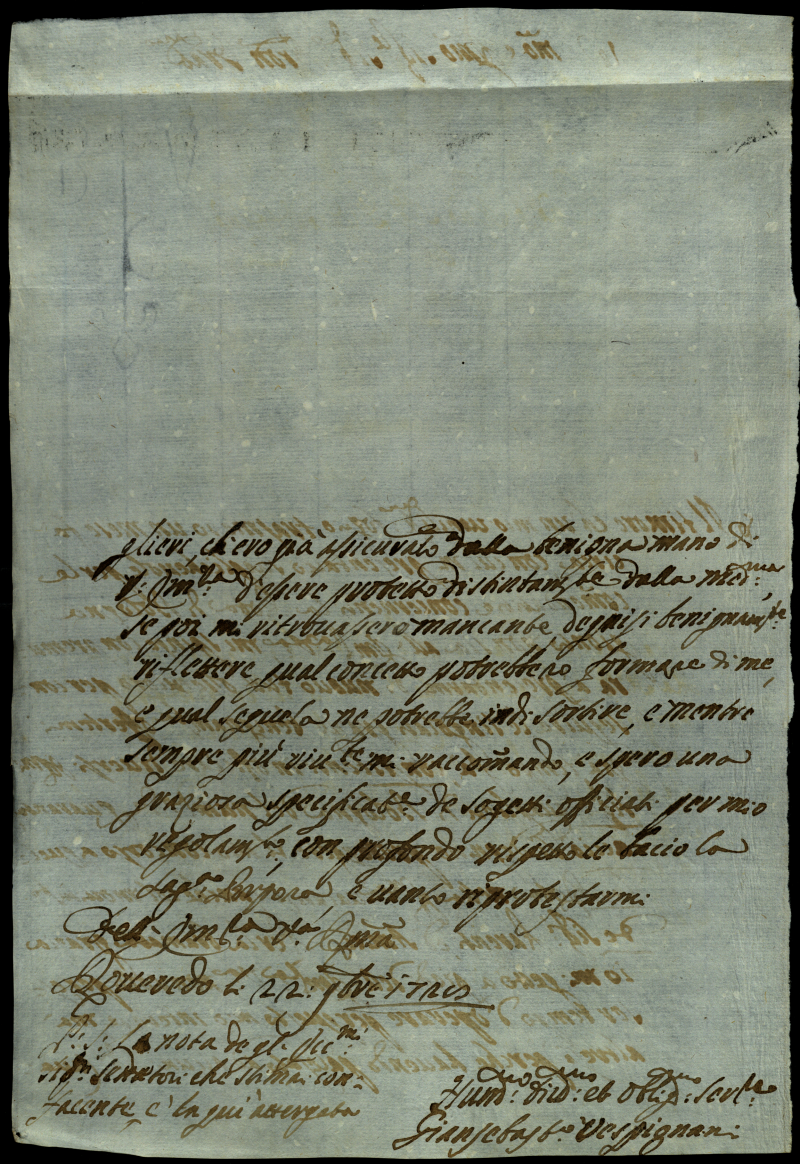 glieri, ch'ero già assicurato dalla benigna mano di
V: Em:za d'essere protetto distintam:te dalla med:ma,
se poi mi ritrovassero mancante, degnisi benignam:te
riflettere, qual concetto potrebbero formare di me,
e qual seguela ne potrebbe indi sortire, e mentre
sempre più viv:te mi raccomando, e spero una
graziosa specificat:e de sogetti officiati per mio
regolam:to, con profondo rispetto le bacio la
Sag:a Porpora, e vanto riprotestarmi
Dell' Em:za V:ra Rma
Roveredo li 22: gbre 1729
P: S: La nota de gl: Ecc:mi
Sig:ri Senatori che stimai con:
facente, è la qui attergata
Hum:mo Div:mo et Oblig:mo Serv:re
Giansebast:o Vespignani